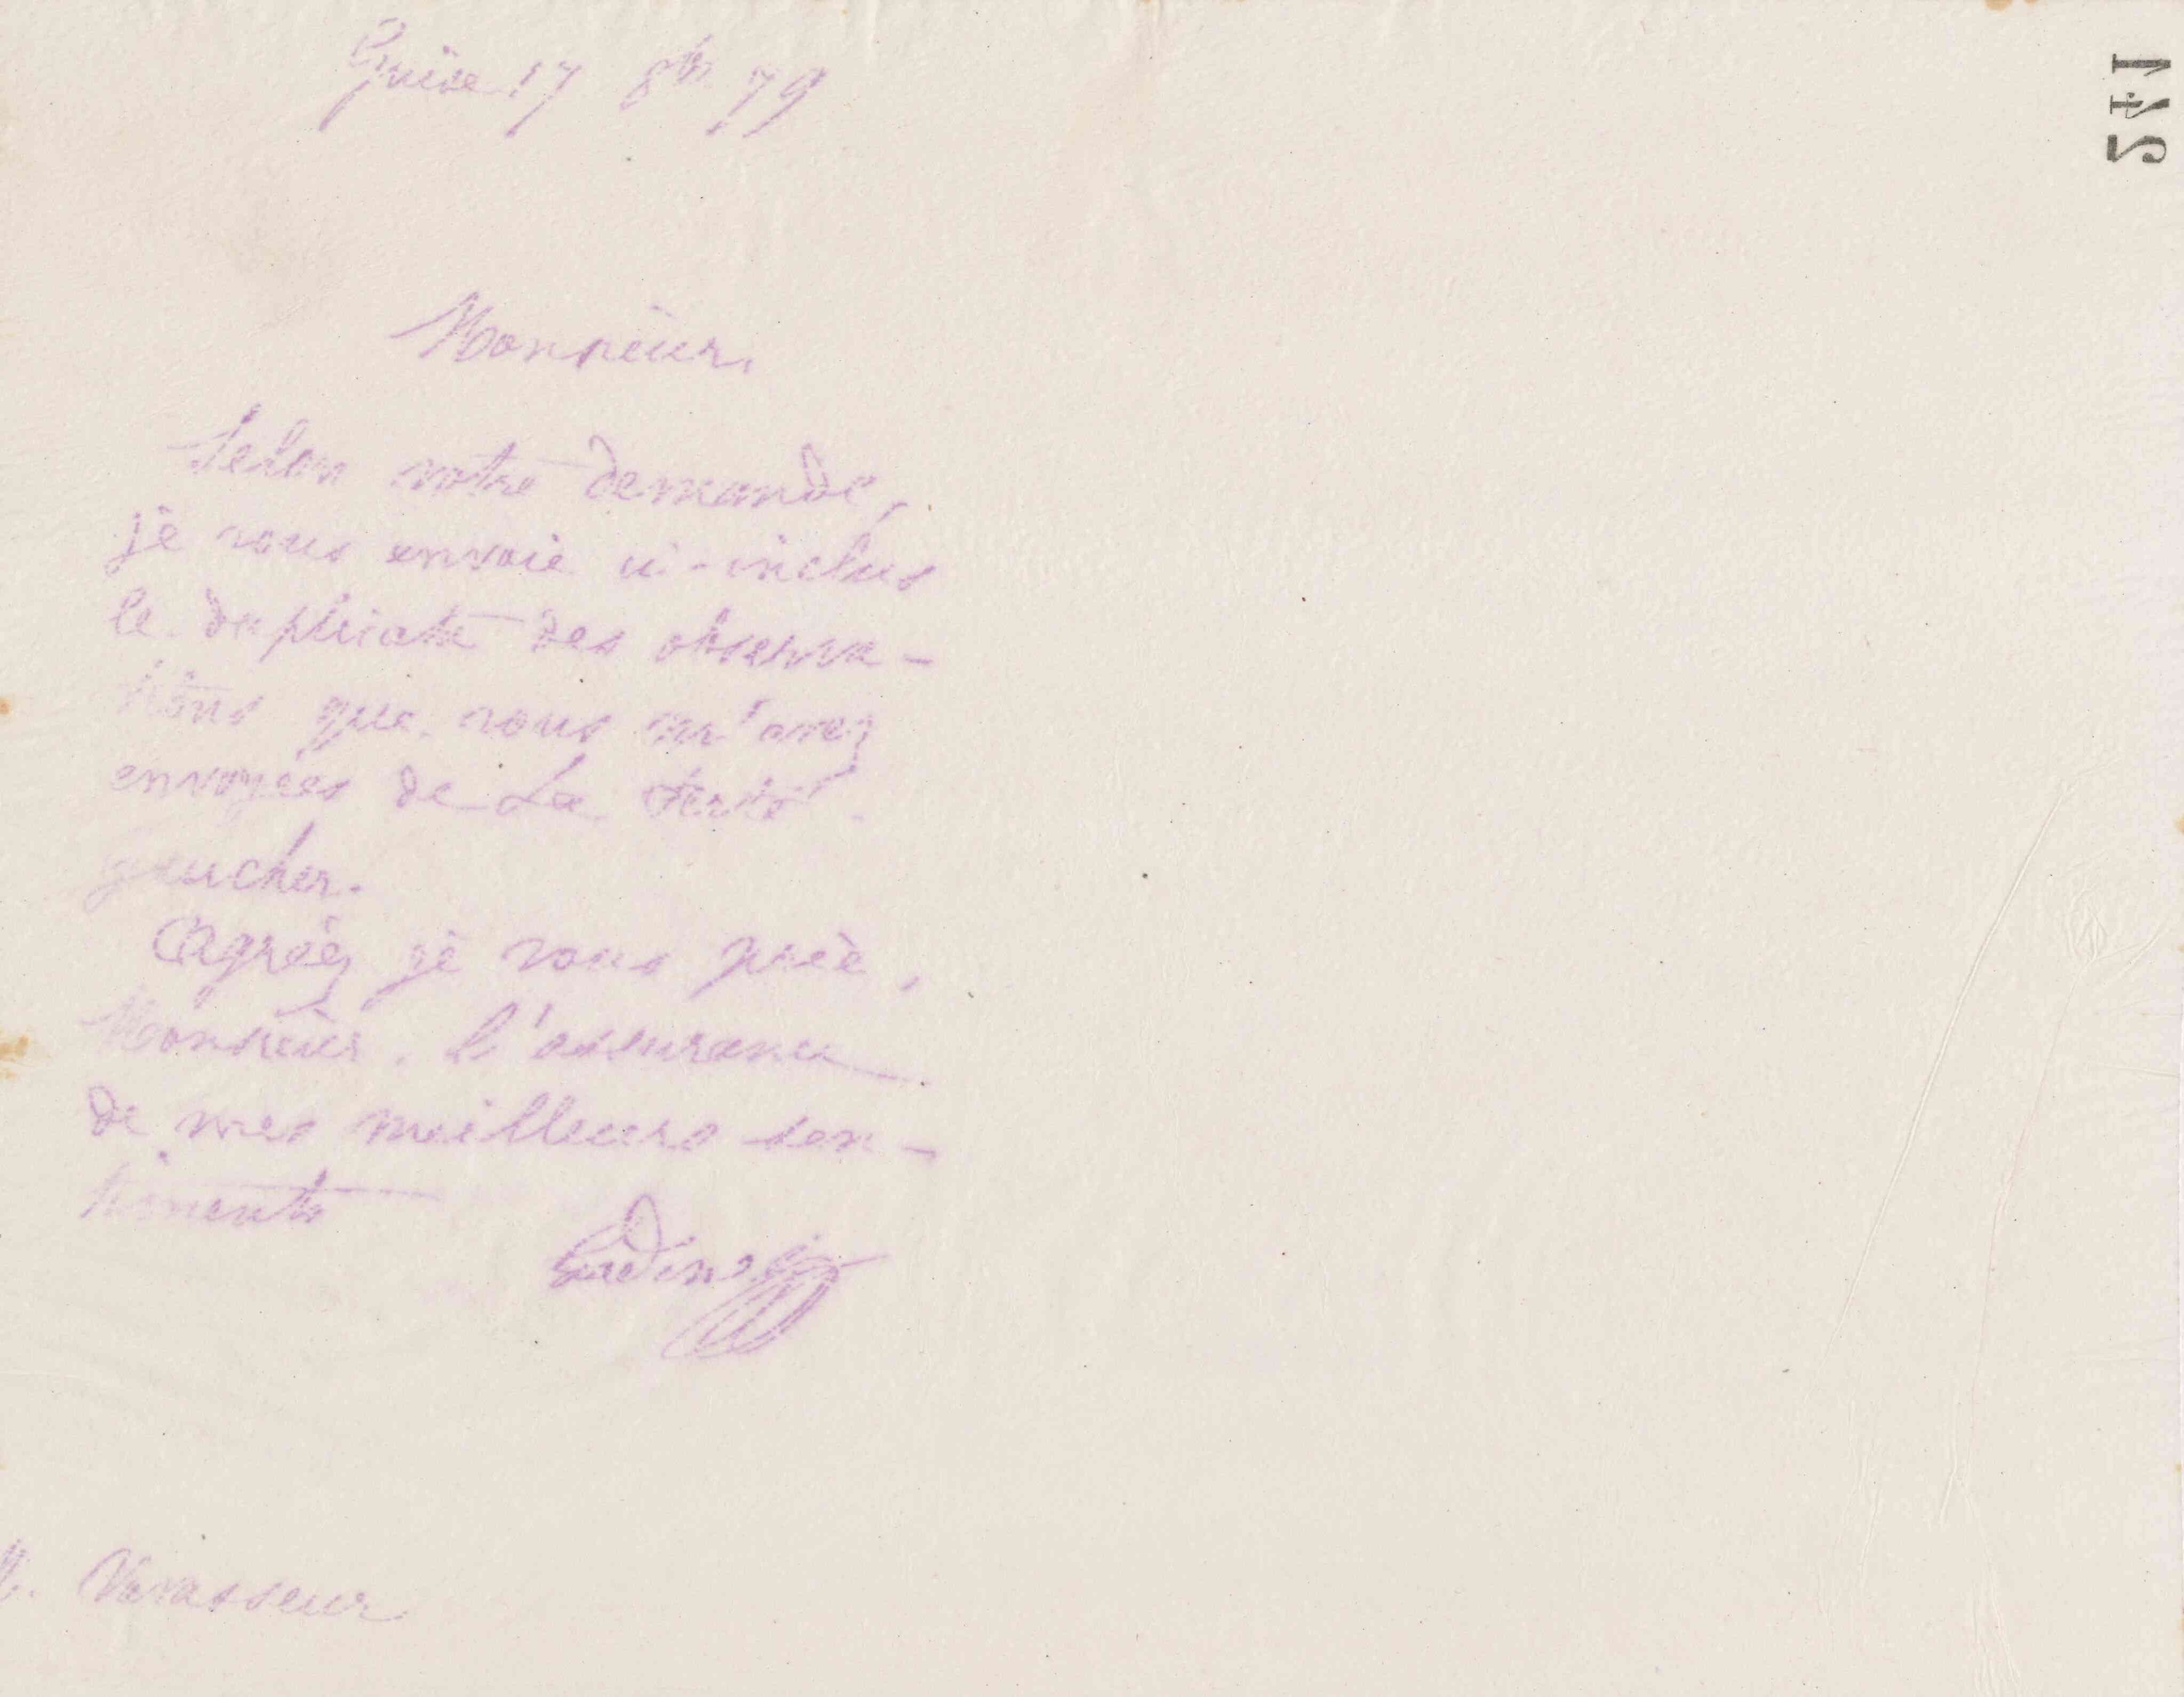 Guise 17 8bre 79
Monsieur,
Selon votre demande,
je vous envoie ci-inclus
le duplicata des observa-
tions que vous m'avez
envoyées de La Ferté
gaucher.
Agréez je vous prie,
Monsieur, l'assurance
de mes meilleurs sen-
timents
Godin
M. Vavasseur